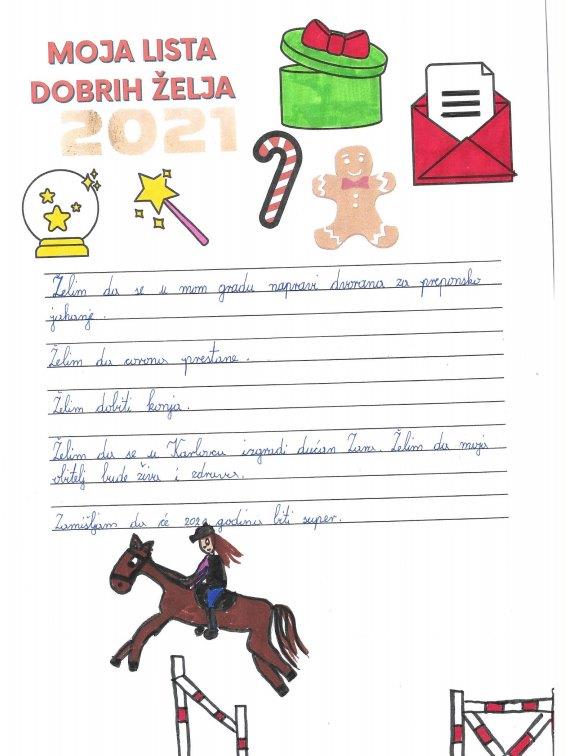 MOJA LISTA
DOBRIH ŽELJA
2021
Želim da se u mom gradu napravi dvorana za preponsko
jahanje.
Želim da corona prestane.
Želim dobiti konja.
Želim da se u Karlovcu izgradi dućan Zara. Želim da moja
obitelj bude živa i zdrava.
Zamišljam da će 2021 godina biti super.